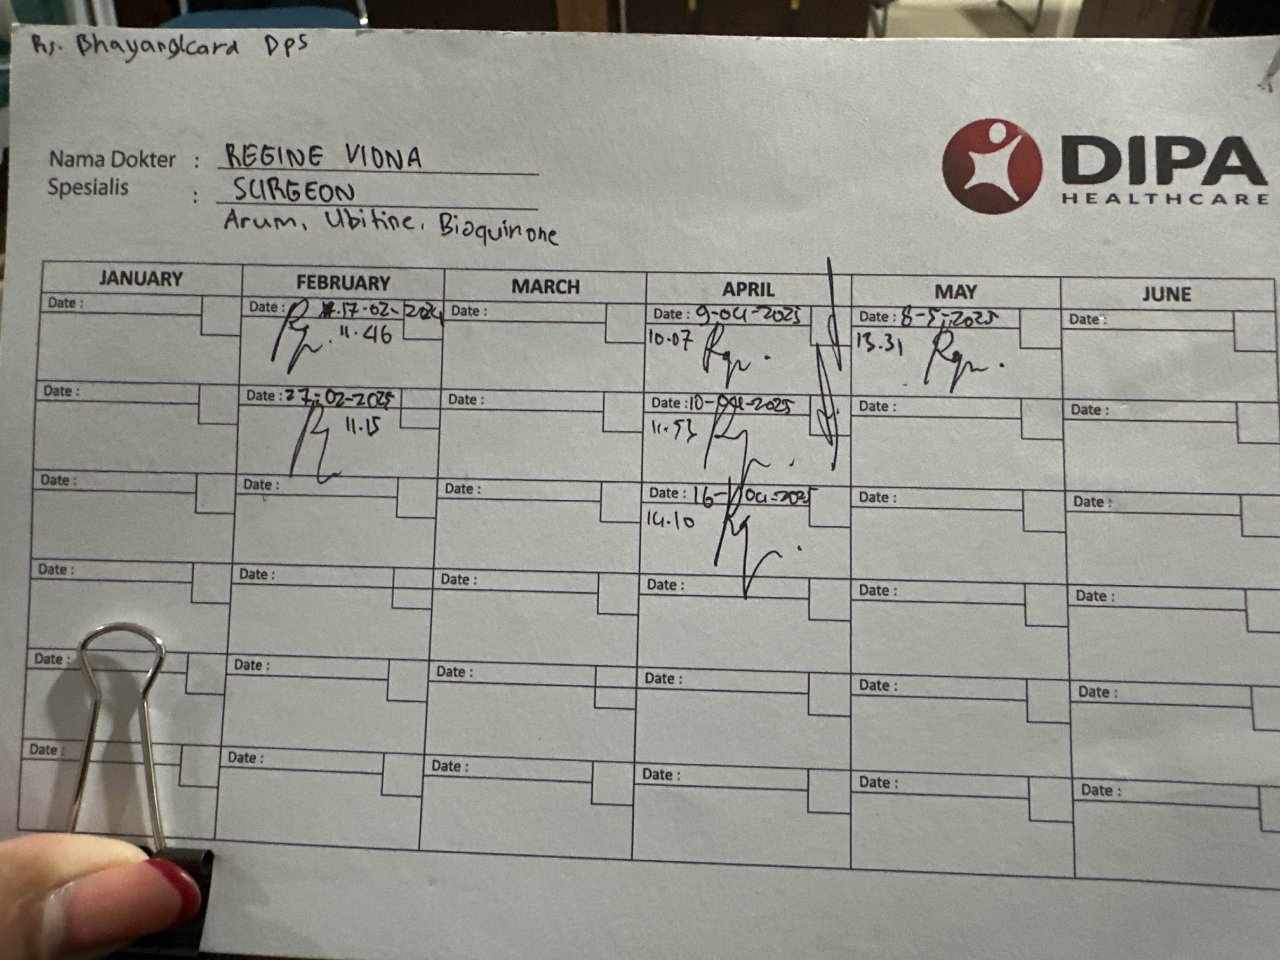 Rs. Bhayangkara DPS
DIPA
HEALTHCARE
Nama Dokter : REGINE VIONA
Spesialis : SURGEON
Arum, Ubitine, Bioquinone
JANUARY FEBRUARY MARCH APRIL MAY JUNE
Date : Date : 17-02-2024 Date : Date : 9-04-2025 Date : 8-5-2025 Date :
11.46 10.07 13.31
Date : Date : 27-02-2025 Date : Date : 10-04-2025 Date : Date :
11.15 11.53
Date : Date : Date : Date : 16-04-2025 Date : Date :
14.10
Date : Date : Date : Date : Date : Date :
Date : Date : Date : Date : Date : Date :
Date : Date : Date : Date : Date : Date :